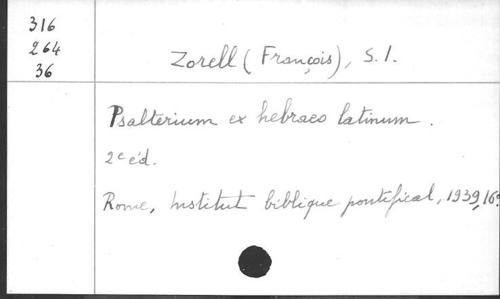 316
264
36
Zorell (François), S.I.
Psalterium ex hebraeo latinum.
2e éd.
Rome, Institut biblique pontifical, 1939, 16°